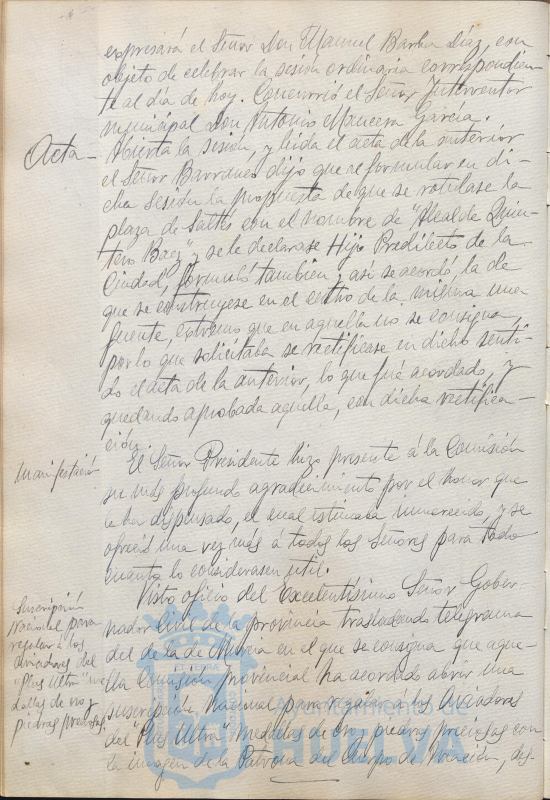 expresará el Señor Don Manuel Barba Díaz, con
objeto de celebrar la sesión ordinaria correspondien-
te al día de hoy. Concurrió el Señor Interventor
municipal Don Antonio Mancera García.
Acta-
Abierta la sesión, y leida el acta de la anterior
el Señor Barranés dijo que al formular en di-
cha sesión la propuesta de que se rotulase la
plaza de Saltés con el nombre de "Alcalde Quin-
tero Baez" y se le declarase Hijo Predilecto de la
Ciudad, formuló también, y así se acordó, la de
que se construyese en el centro de la misma una
fuente, extremo que en aquella no se consigna,
por lo que solicitaba se rectificase en dicho senti-
do el acta de la anterior, lo que fué acordado, y
quedando aprobada aquella, con dicha rectifica-
ción.
Manifestación
El Señor Presidente hizo presente á la Comisión
su más profundo agradecimiento por el honor que
le ha dispensado, el cual estimaba inmerecido, y se
ofreció una vez más á todos los Señores para todo
cuanto lo considerasen útil.
Suscripción
Nacional para
regalar á los
aviadores del
"Plus Ultra" me-
dallas de oro y
piedras preciosas.
Visto oficio del Excelentísimo Señor Gober-
nador Civil de la provincia trasladando telegrama
del de la de Murcia en el que se consigna que aque-
lla Comisión provincial ha acordado abrir una
suscripción Nacional para regalar á los Aviadores
del "Plus Ultra" medallas de oro y piedras preciosas con
la imagen de la Patrona del Cuerpo de Aviación, dis-
Ayuntamiento de
HUELVA